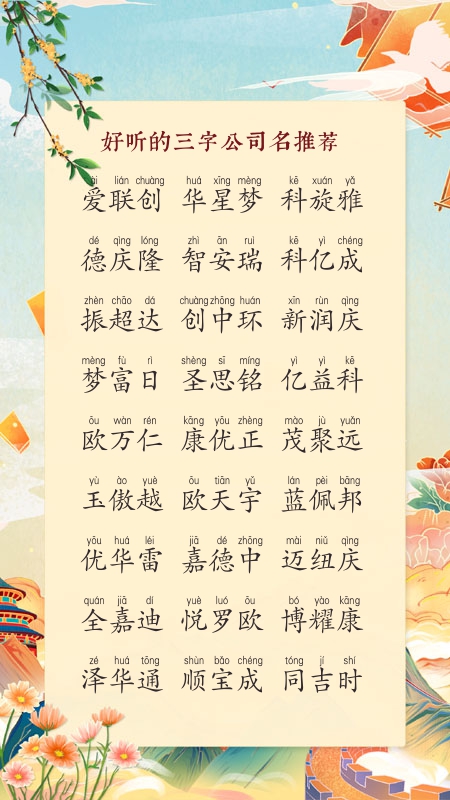 好听的三字公司名推荐
ài lián chuàng huá xīng mèng kē xuán yǎ
爱联创 华星梦 科旋雅
dé qìng lóng zhì ān ruì kē yì chéng
德庆隆 智安瑞 科亿成
zhèn chāo dá chuàng zhōng huán xīn rùn qìng
振超达 创中环 新润庆
mèng fù rì shèng sī míng yì yì kē
梦富日 圣思铭 亿益科
ōu wàn rén kāng yōu zhèng mào jù yuǎn
欧万仁 康优正 茂聚远
yù ào yuè ōu tiān yǔ lán pèi bāng
玉傲越 欧天宇 蓝佩邦
yōu huá léi jiā dé zhōng mài niǔ qìng
优华雷 嘉德中 迈纽庆
quán jiā dí yuè luó ōu bó yào kāng
全嘉迪 悦罗欧 博耀康
zé huá tōng shùn bǎo chéng tóng jí shí
泽华通 顺宝成 同吉时